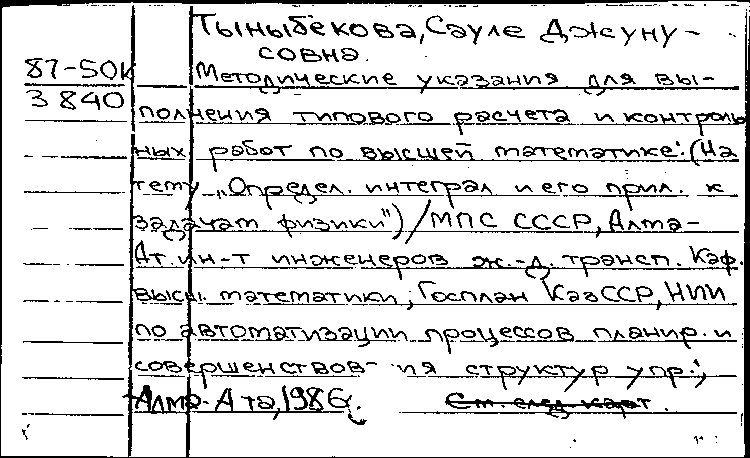 Тыныбекова, Сауле Джуну-
совна.
87-50к
3840
Методические указания для вы-
полнения типового расчета и контроль
ных работ по высшей математике: (На
тему „Определ. интеграл и его прил. к
задачам физики") / МПС СССР, Алма-
Ат. ин-т инженеров ж.-д. трансп. Каф.
высш. математики; Госплан КазССР, НИИ
по автоматизации процессов планир. и
совершенствов-ия структур упр.;
Алма-Ата, 1986.
См. след. карт.